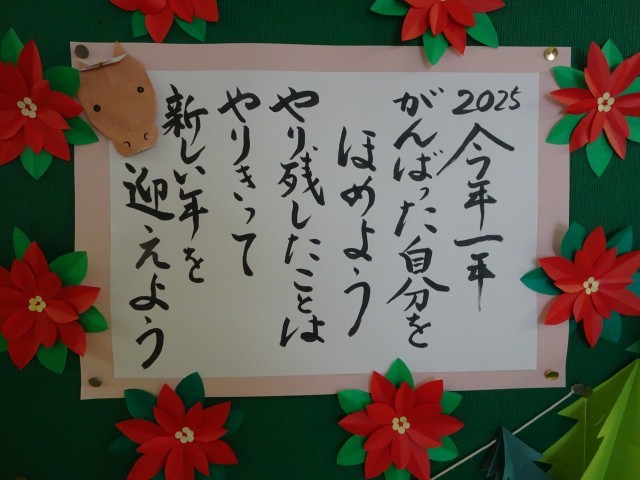 2025
今年一年
がんばった自分を
ほめよう
やり残したことは
やりきって
新しい年を
迎えよう